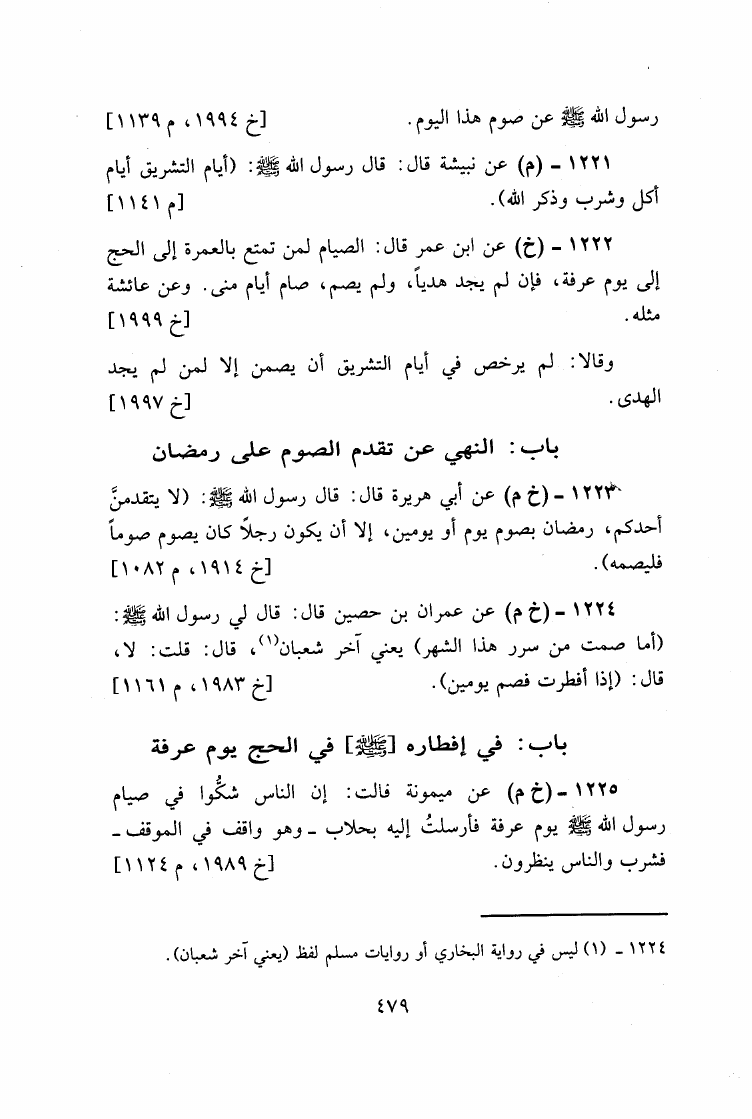 رسول الله ﷺ عن صوم هذا اليوم. [خ ١٩٩٤، م ١١٣٩]
١٢٢١ ـ (م) عن نبيشة قال: قال رسول الله ﷺ: (أيام التشريق أيام
أكل وشرب وذكر الله). [م ١١٤١]
١٢٢٢ ـ (خ) عن ابن عمر قال: الصيام لمن تمتع بالعمرة إلى الحج
إلى يوم عرفة، فإن لم يجد هدياً، ولم يصم، صام أيام منى. وعن عائشة
مثله. [خ ١٩٩٩]
وقالا: لم يرخص في أيام التشريق أن يصمن إلا لمن لم يجد
الهدى. [خ ١٩٩٧]
باب: النهي عن تقدم الصوم على رمضان
١٢٢٣ ـ (خ م) عن أبي هريرة قال: قال رسول الله ﷺ: (لا يتقدمنَّ
أحدكم، رمضان بصوم يوم أو يومين، إلا أن يكون رجلاً كان يصوم صوماً
فليصمه). [خ ١٩١٤، م ١٠٨٢]
١٢٢٤ ـ (خ م) عن عمران بن حصين قال: قال لي رسول الله ﷺ:
(أما صمت من سرر هذا الشهر) يعني آخر شعبان(١)، قال: قلت: لا،
قال: (إذا أفطرت فصم يومين). [خ ١٩٨٣، م ١١٦١]
باب: في إفطاره [ﷺ] في الحج يوم عرفة
١٢٢٥ ـ (خ م) عن ميمونة قالت: إن الناس شكُّوا في صيام
رسول الله ﷺ يوم عرفة فأرسلتُ إليه بحلاب ـ وهو واقف في الموقف ـ
فشرب والناس ينظرون. [خ ١٩٨٩، م ١١٢٤]
١٢٢٤ ـ (١) ليس في رواية البخاري أو روايات مسلم لفظ (يعني آخر شعبان).
٤٧٩